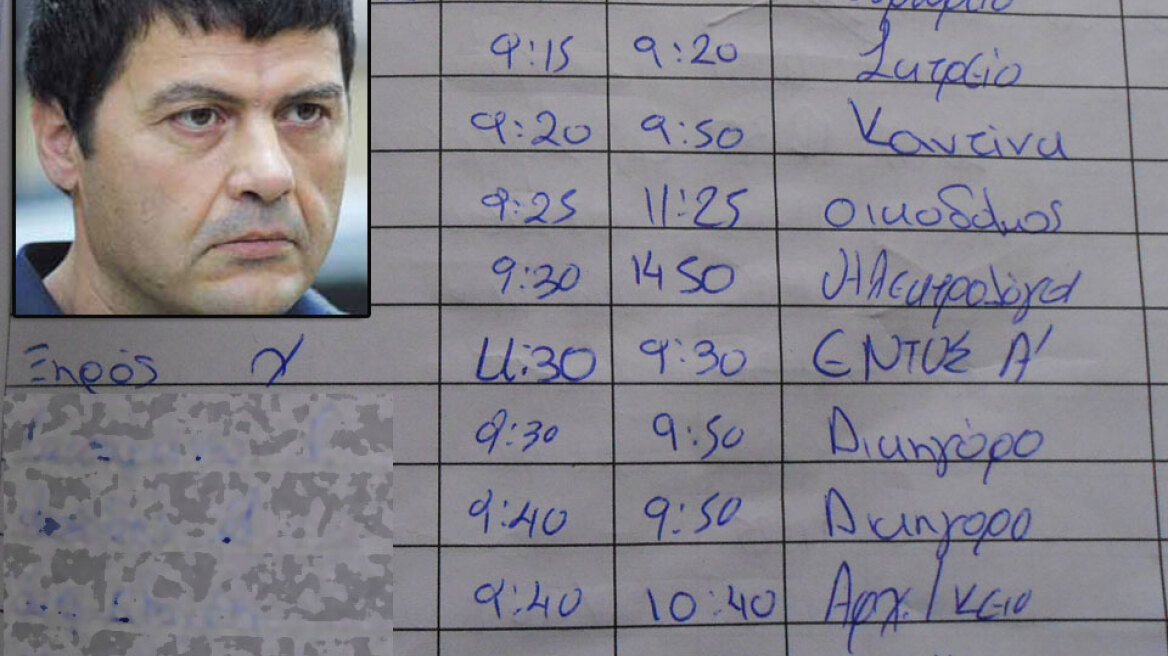 9:15 9:20 Ιατρείο
9:20 9:50 Καντίνα
9:25 11:25 οικοδόμος
9:30 14 50 Ηλεκτρολόγοι
Ξηρός Α' 11:30 9:30 ΕΝΤΟΣ Α'
9:30 9:50 Δικηγόρο
9:40 9:50 Δικηγορο
9:40 10:40 Αρχ/κειο